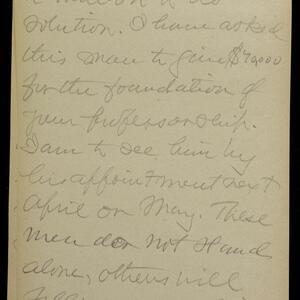 solution. I have asked
this man to give $70,000
for the foundation of
your professorship.
I am to see him by
his appointment next
April or May. These
men do not stand
alone, others will